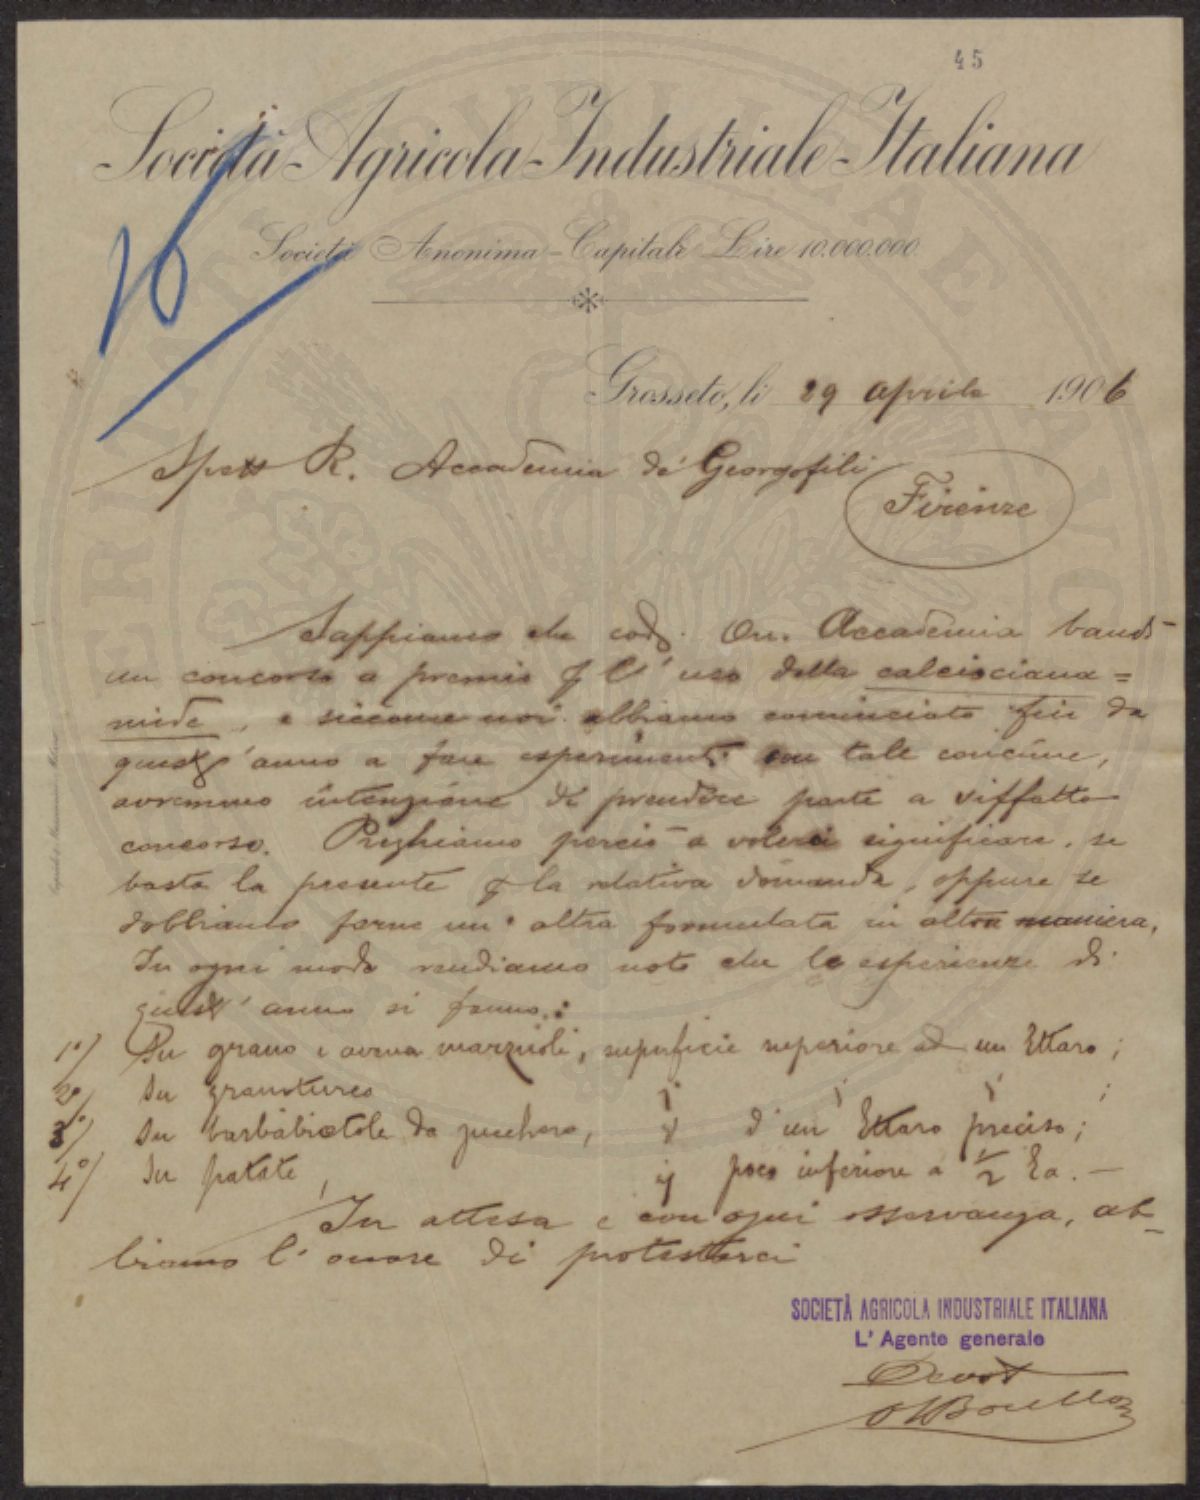 45
Società Agricola Industriale Italiana
Società Anonima - Capitale Lire 10.000.000
Grosseto, li 29 aprile 1906
Spett R. Accademia de' Georgofili
Firenze
Sappiamo che cod. On. Accademia bandì
un concorso a premio p l' uso della calciociana=
mide, e siccome noi abbiamo cominciato fin da
quest' anno a fare esperimenti con tale concime,
avremmo intenzione di prendere parte a siffatto
concorso. Preghiamo perciò a volerci significare, se
basta la presente p la relativa domanda, oppure se
dobbiamo farne un' altra formulata in altra maniera.
In ogni modo rendiamo noto che le esperienze di
quest' anno si fanno:
1°/ Su grano e avena marzuoli, superficie superiore ad un Ettaro;
2°/ Su granturco " " " ;
3°/ Su barbabietole da zucchero, " d' un Ettaro preciso;
4°/ Su patate, " poco inferiore a 1/2 Ea. —
In attesa e con ogni osservanza, ab-
biamo l' onore di protestarci
SOCIETÀ AGRICOLA INDUSTRIALE ITALIANA
L' Agente generale
Devot